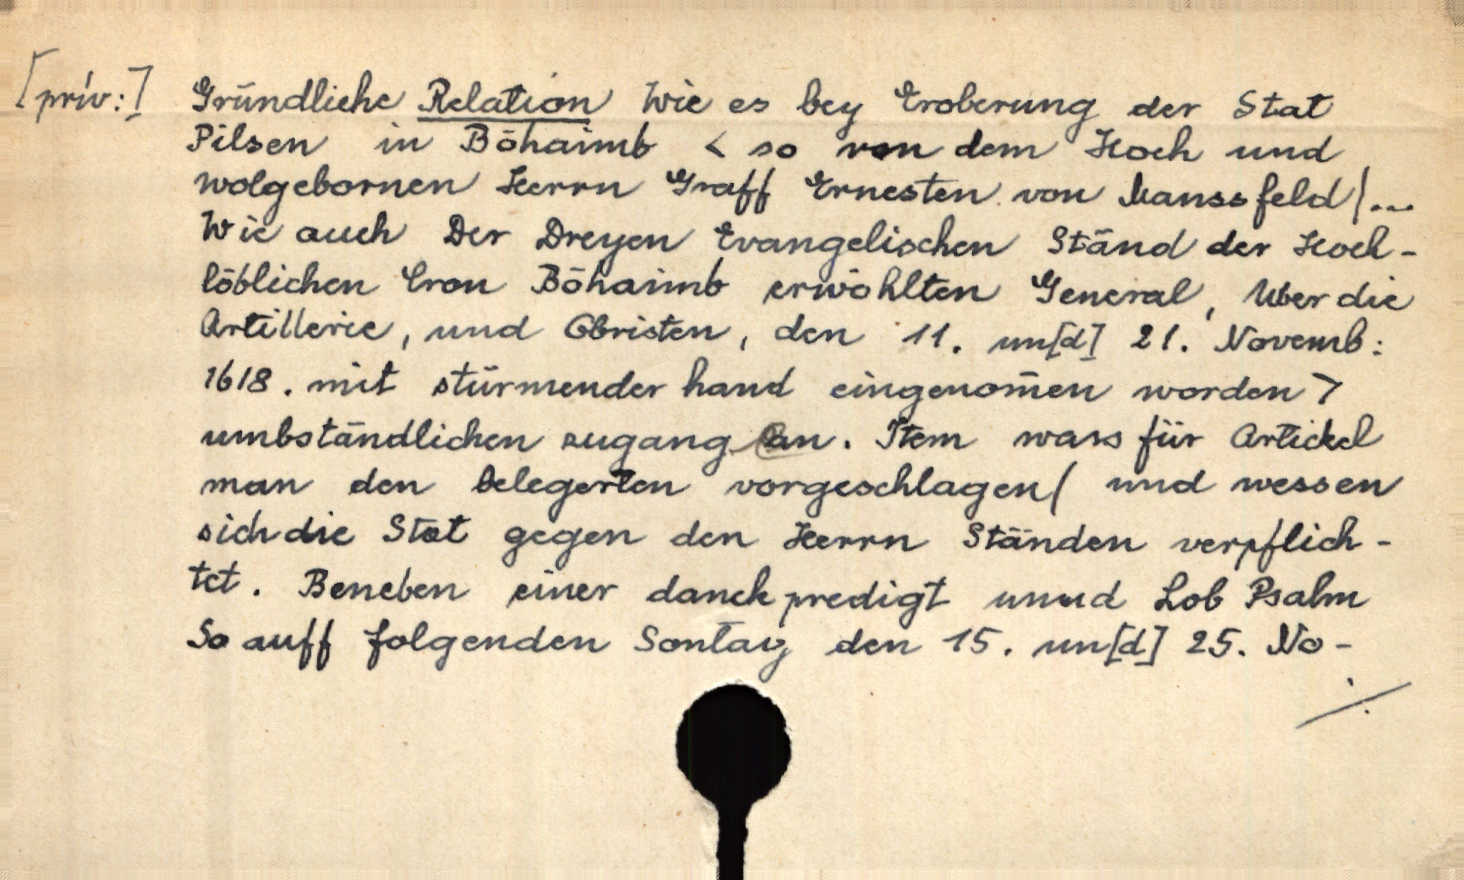 [priv:] Gründliche Relation Wie es bey Eroberung der Stat
Pilsen in Böhaimb < so von dem Hoch und
wolgebornen Herrn Graff Ernesten von Manssfeld/...
Wie auch Der Dreyen Evangelischen Ständ der Hoch-
löblichen Cron Böhaimb erwöhlten General, Uber die
Artillerie, und Obristen, den 11. un[d] 21. Novemb:
1618. mit stürmender hand eingenom̄en worden >
umbständlichen zugang an. Item wass für Artickel
man den belegerten vorgeschlagen/ und wessen
sich die Stat gegen den Herrn Ständen verpflich-
tet. Beneben einer danck predigt unnd Lob Psalm
So auff folgenden Sontag den 15. un[d] 25. No-
./.